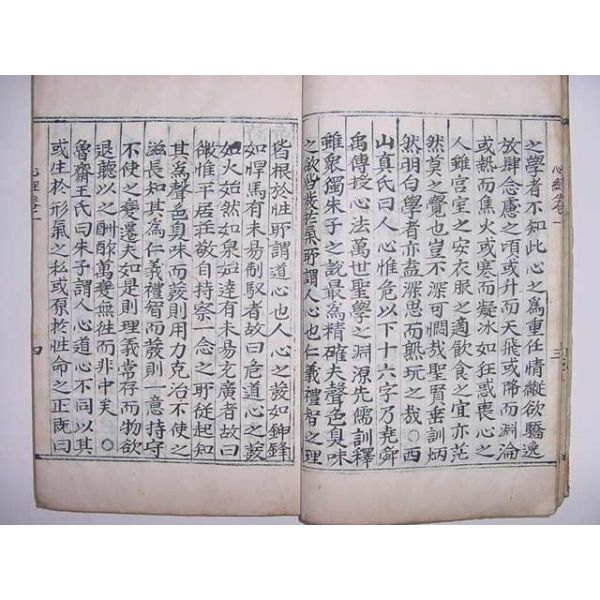 心經卷一 三
之學者不知此心之爲重任情縱欲驕逸
放肆念慮之頃或升而天飛或降而淵淪
或熱而焦火或寒而凝冰如狂惑喪心之
人雖宮室之安衣服之適飲食之宜亦茫
然莫之覺也豈不深可哉聖賢垂訓炳
然明白學者亦盍深思而熟玩之哉○西
山眞氏曰人心惟危以下十六字乃堯舜
禹傳授心法萬世聖學之淵源先儒訓釋
雖衆獨朱子之說最爲精確夫聲色臭味
之欲皆發於氣所謂人心也仁義禮智之理
皆根於性所謂道心也人心之發如銛鋒
如悍馬有未易制馭者故曰危道心之發
如火始然如泉始達有未易充廣者故曰
微惟平居莊敬自持察一念之所從起知
其爲聲色臭味而發則用力克治不使之
滋長知其爲仁義禮智而發則一意持守
不使之變遷夫如是則理義常存而物欲
退聽以之酬酢萬變無往而非中矣○
魯齋王氏曰朱子謂人心道心不同以其
或生於形氣之私或原於性命之正旣曰
心經卷一 四